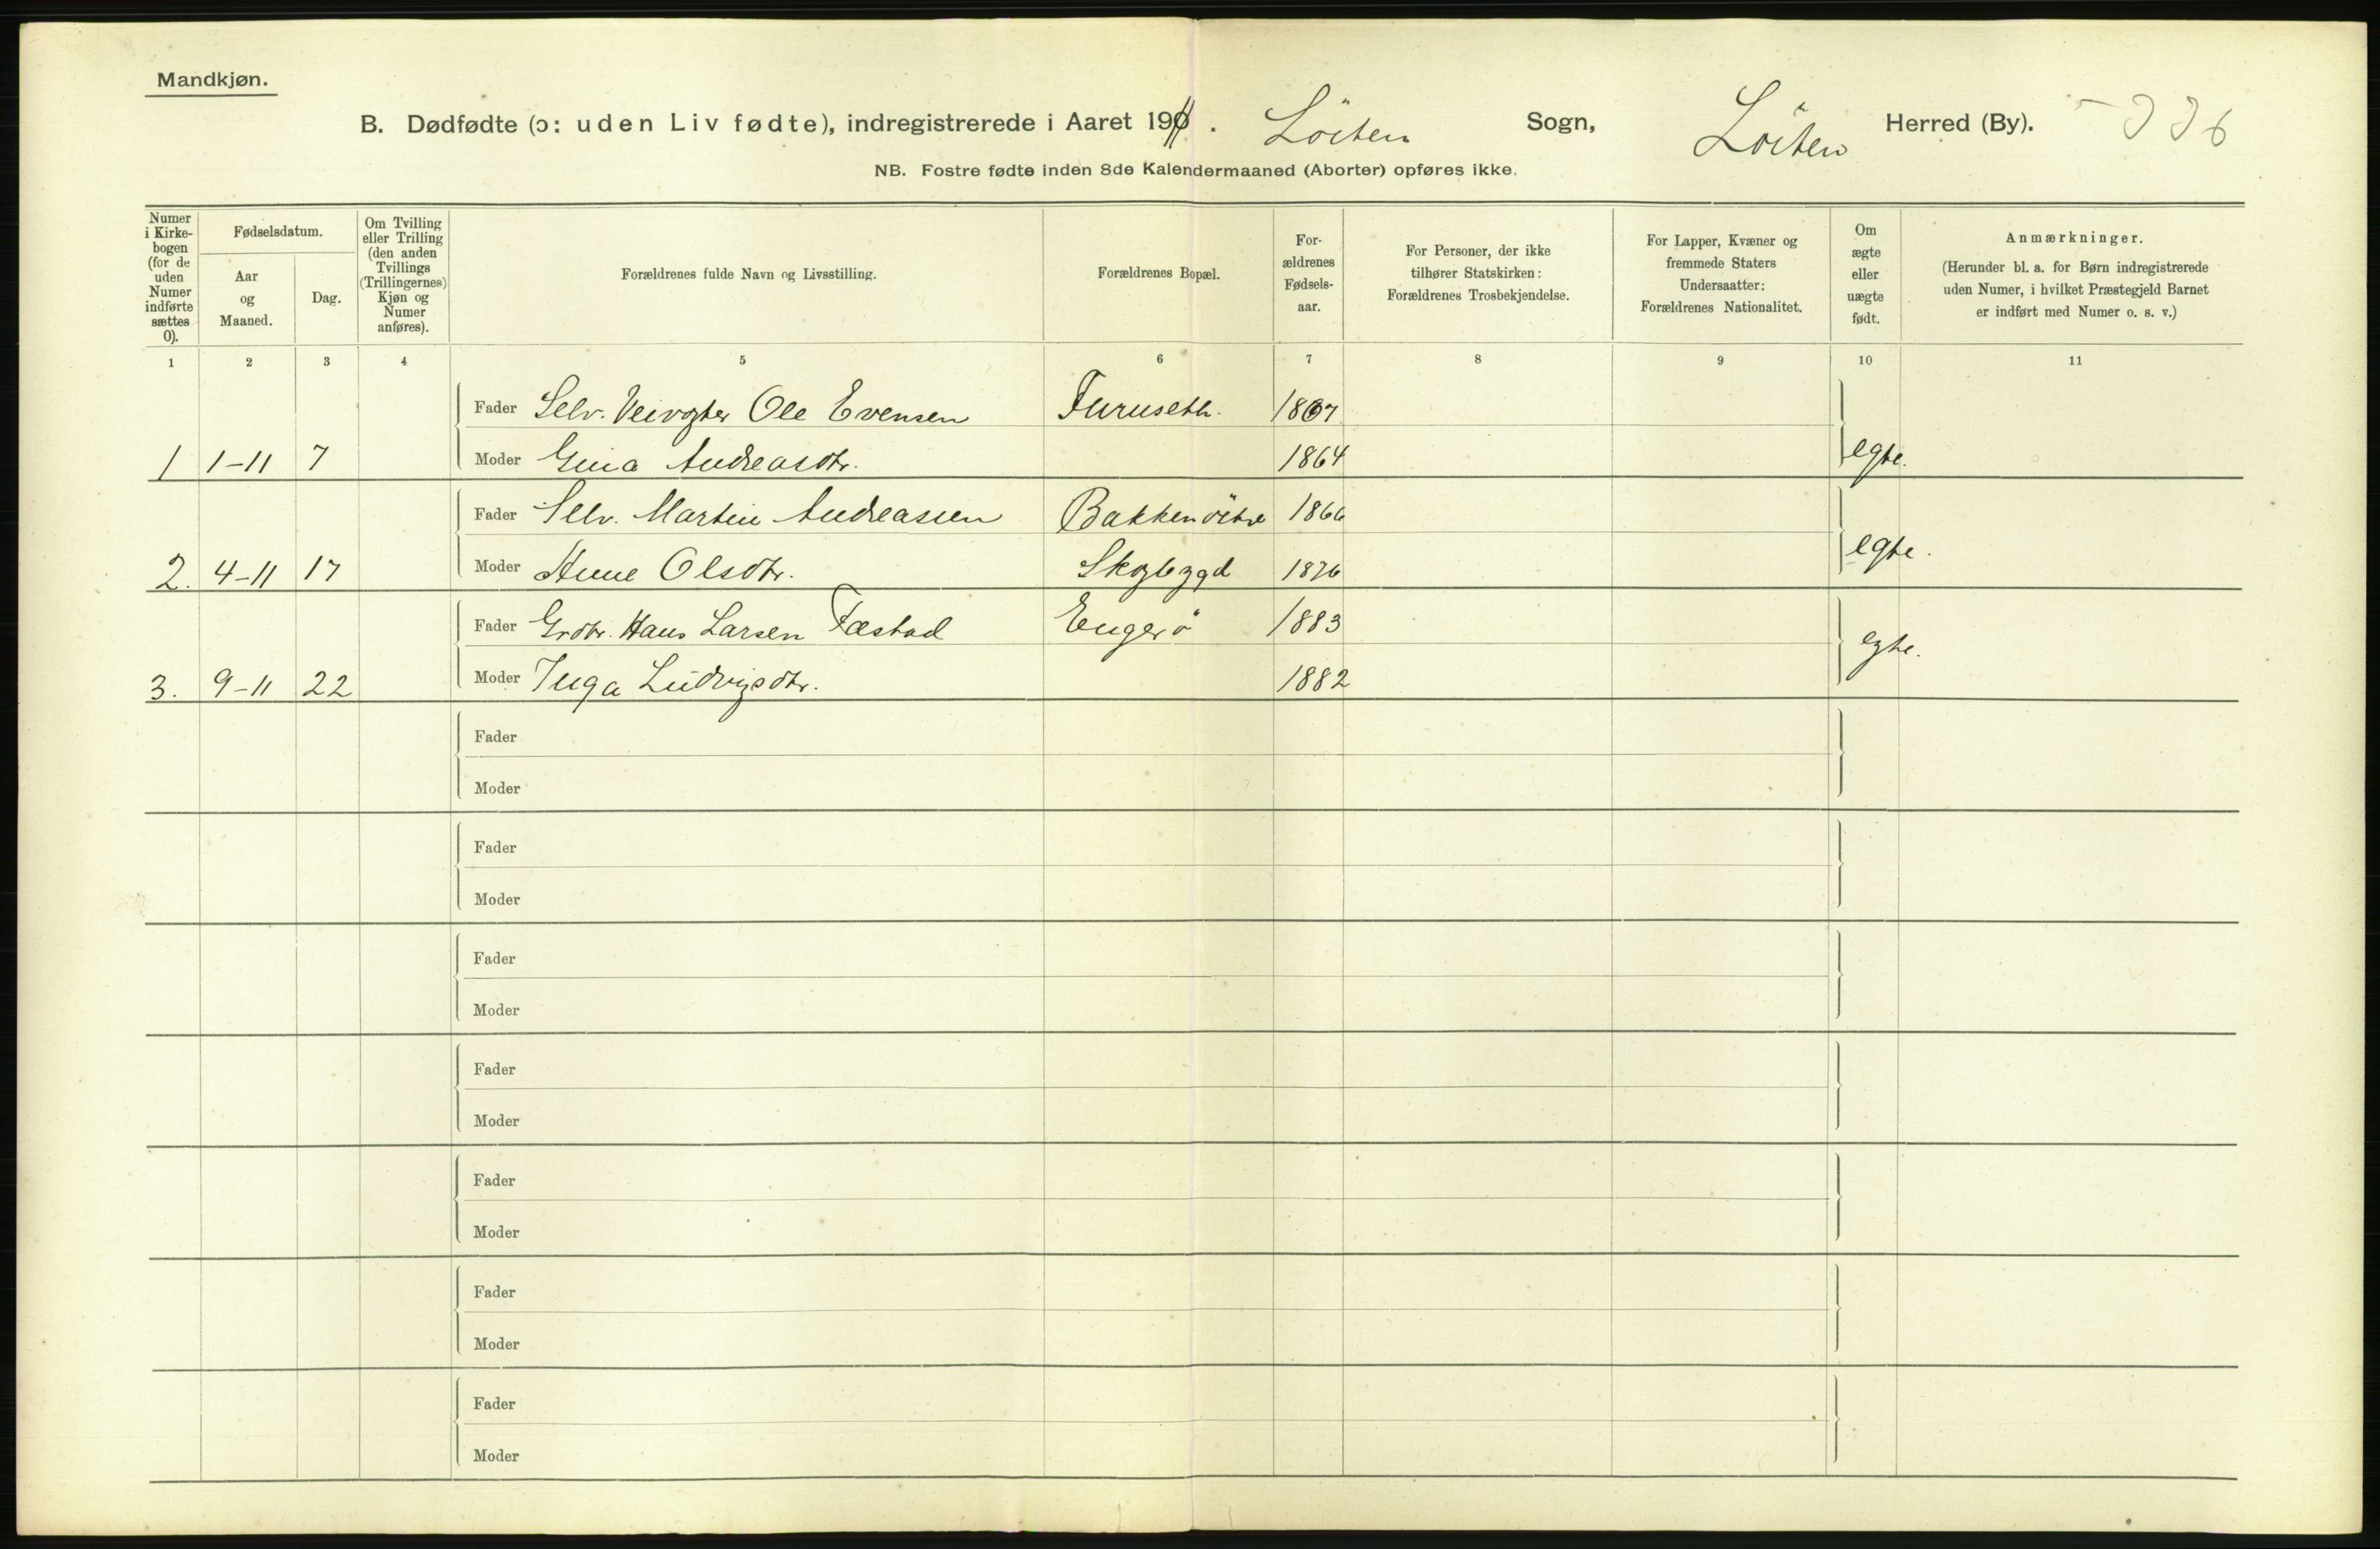 Mandkjøn.
B. Dødfødte (ɔ: uden Liv fødte), indregistrerede i Aaret 1911. Löiten Sogn, Löiten Herred (By).
NB. Fostre fødte inden 8de Kalendermaaned (Aborter) opføres ikke.
Numer i Kirkebogen (for de uden Numer indførte sættes 0).
Fødselsdatum.
Aar og Maaned.
Dag.
Om Tvilling eller Trilling (den anden Tvillings (Trillingernes) Kjøn og Numer anføres).
Forældrenes fulde Navn og Livsstilling.
Forældrenes Bopæl.
Forældrenes Fødselsaar.
For Personer, der ikke tilhører Statskirken: Forældrenes Trosbekjendelse.
For Lapper, Kvæner og fremmede Staters Undersaatter: Forældrenes Nationalitet.
Om ægte eller uægte født.
Anmærkninger.
(Herunder bl. a. for Børn indregistrerede uden Numer, i hvilket Præstegjeld Barnet er indført med Numer o. s. v.)
1 2 3 4 5 6 7 8 9 10 11
Fader Selv. Veivogter Ole Evensen Furuseth. 1867
1 1-11 7 Moder Gina Andreasdtr. 1864 egte.
Fader Selv. Martin Andreassen 1866
2. 4-11 17 Moder Anne Olsdtr. Skogbygd 1876 egte.
Fader Grdbr. Hans Larsen Fæstad 1883
3. 9-11 22 Moder Inga Ludvigsdtr. 1882 egte.
Fader
Moder
Fader
Moder
Fader
Moder
Fader
Moder
Fader
Moder
Fader
Moder
Fader
Moder